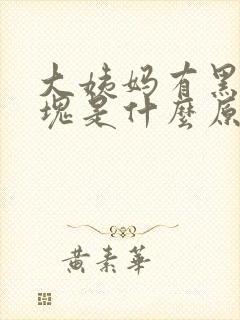 大姨妈有黑
块是什麼原
黄素華